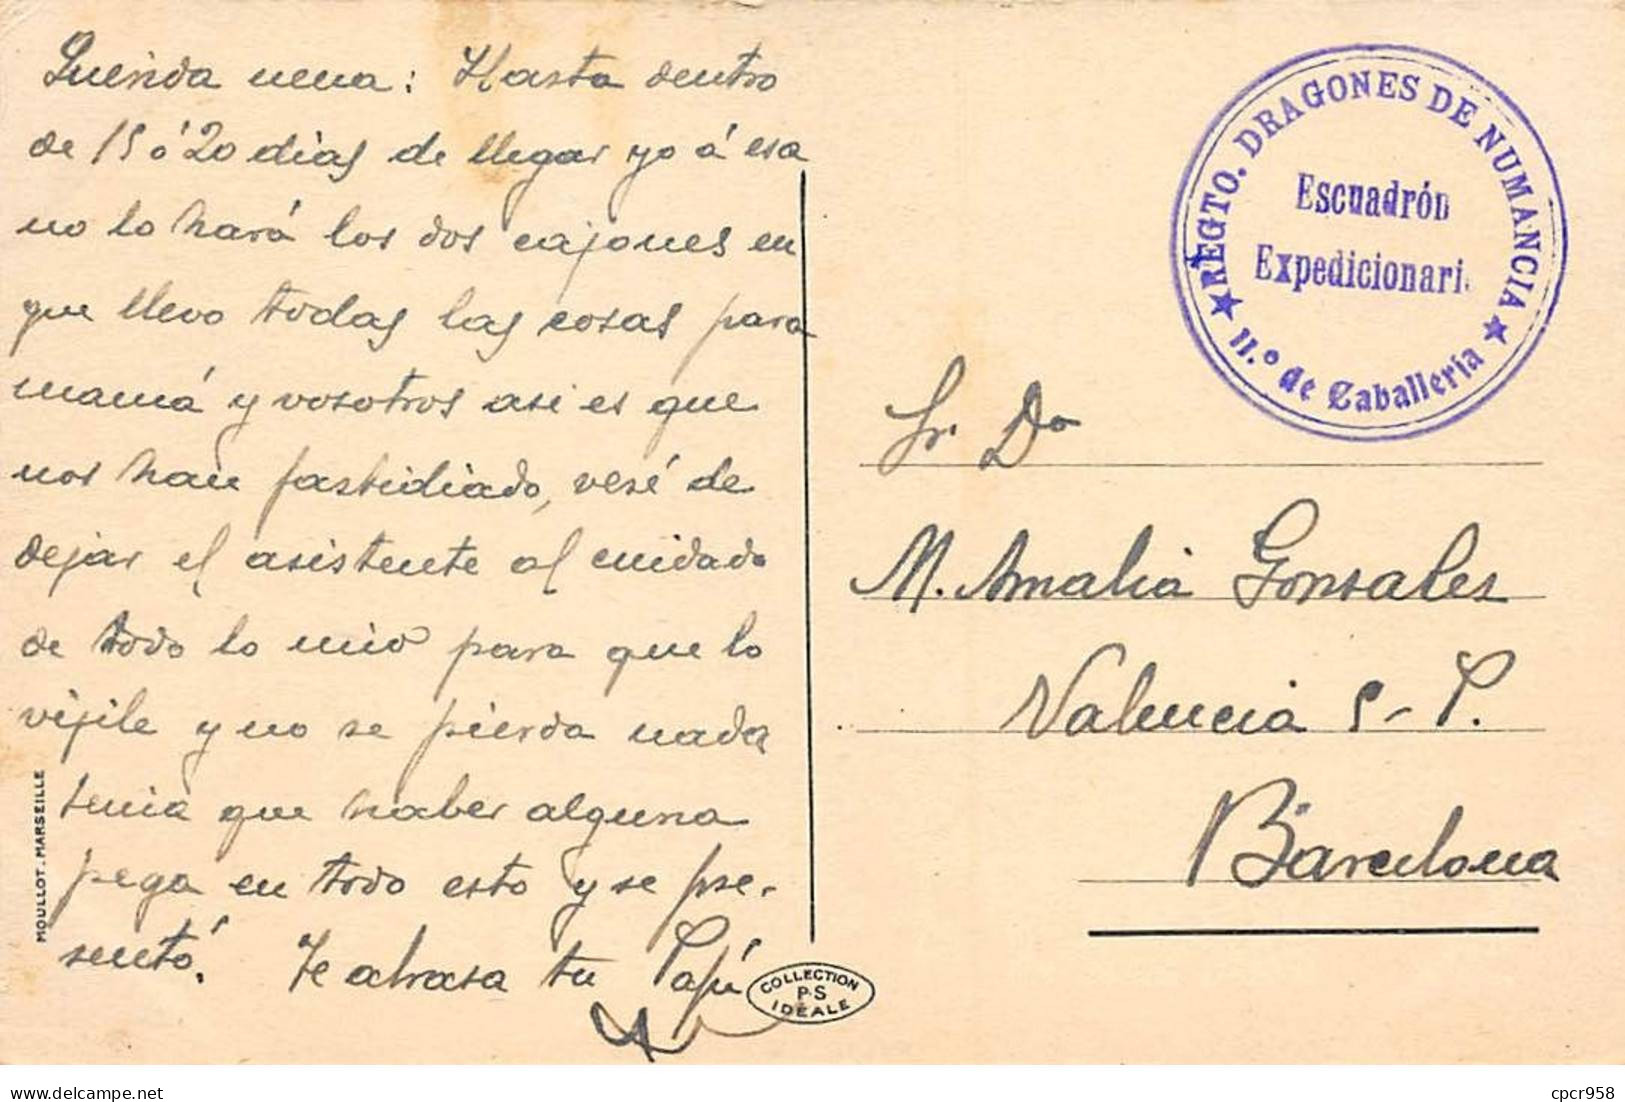 Querida nena: Hasta dentro
de 15 ó 20 dias de llegar yo á esa
no lo hará los dos cajones en
que llevo todas las cosas para
mamá y vosotros asi es que
nos han fastidiado, vesé de
dejar el asistente al cuidado
de todo lo mio para que lo
vijile y no se pierda nada
tenia que haber alguna
pega en todo esto y se pre-
sentó. Te abrasa tu Papá
MOULLOT. MARSEILLE
COLLECTION
P.S
IDÉALE
★ REGTO. DRAGONES DE NUMANCIA ★
11.º de Caballería
Escuadrón
Expedicionari
Sr. Da
M. Amalia Gonsales
Valencia 5-P.
Barcelona
delcampe.net
cpcr958